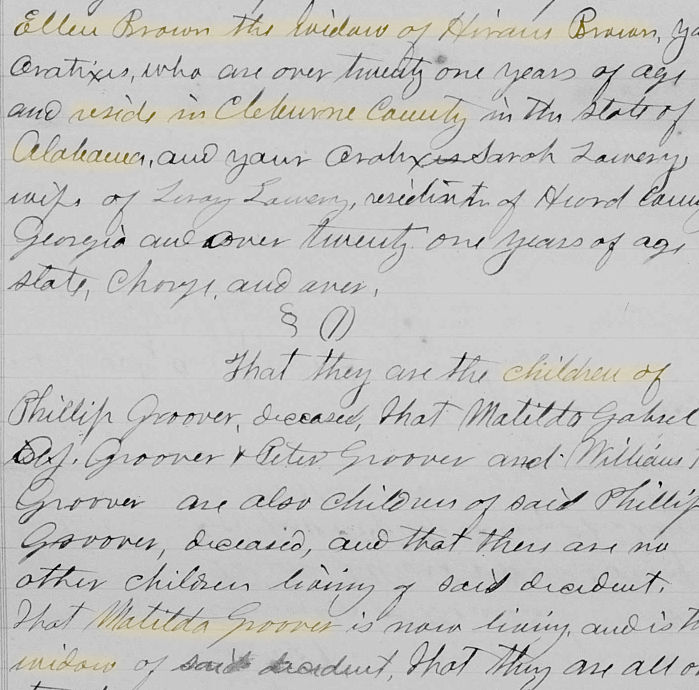 Ellen Brown the widow of Hiram Brown, yo
Oratrixes, who are over twenty one years of age
and reside in Cleburne County in the State of
Alabama, and your Oratrix Sarah Lowery,
wife of Leroy Lowery, resident of Heard Coun
Georgia and over twenty one years of age
state, Charge, and aver,
§ (1)
That they are the children of
Phillip Groover, deceased, that Matilda Gabriel
Groover & Peter Groover and William
Groover are also children of said Phillip
Groover, deceased, and that there are no
other children living of said decedent.
That Matilda Groover is now living, and is th
widow of said decedent, that they are all o